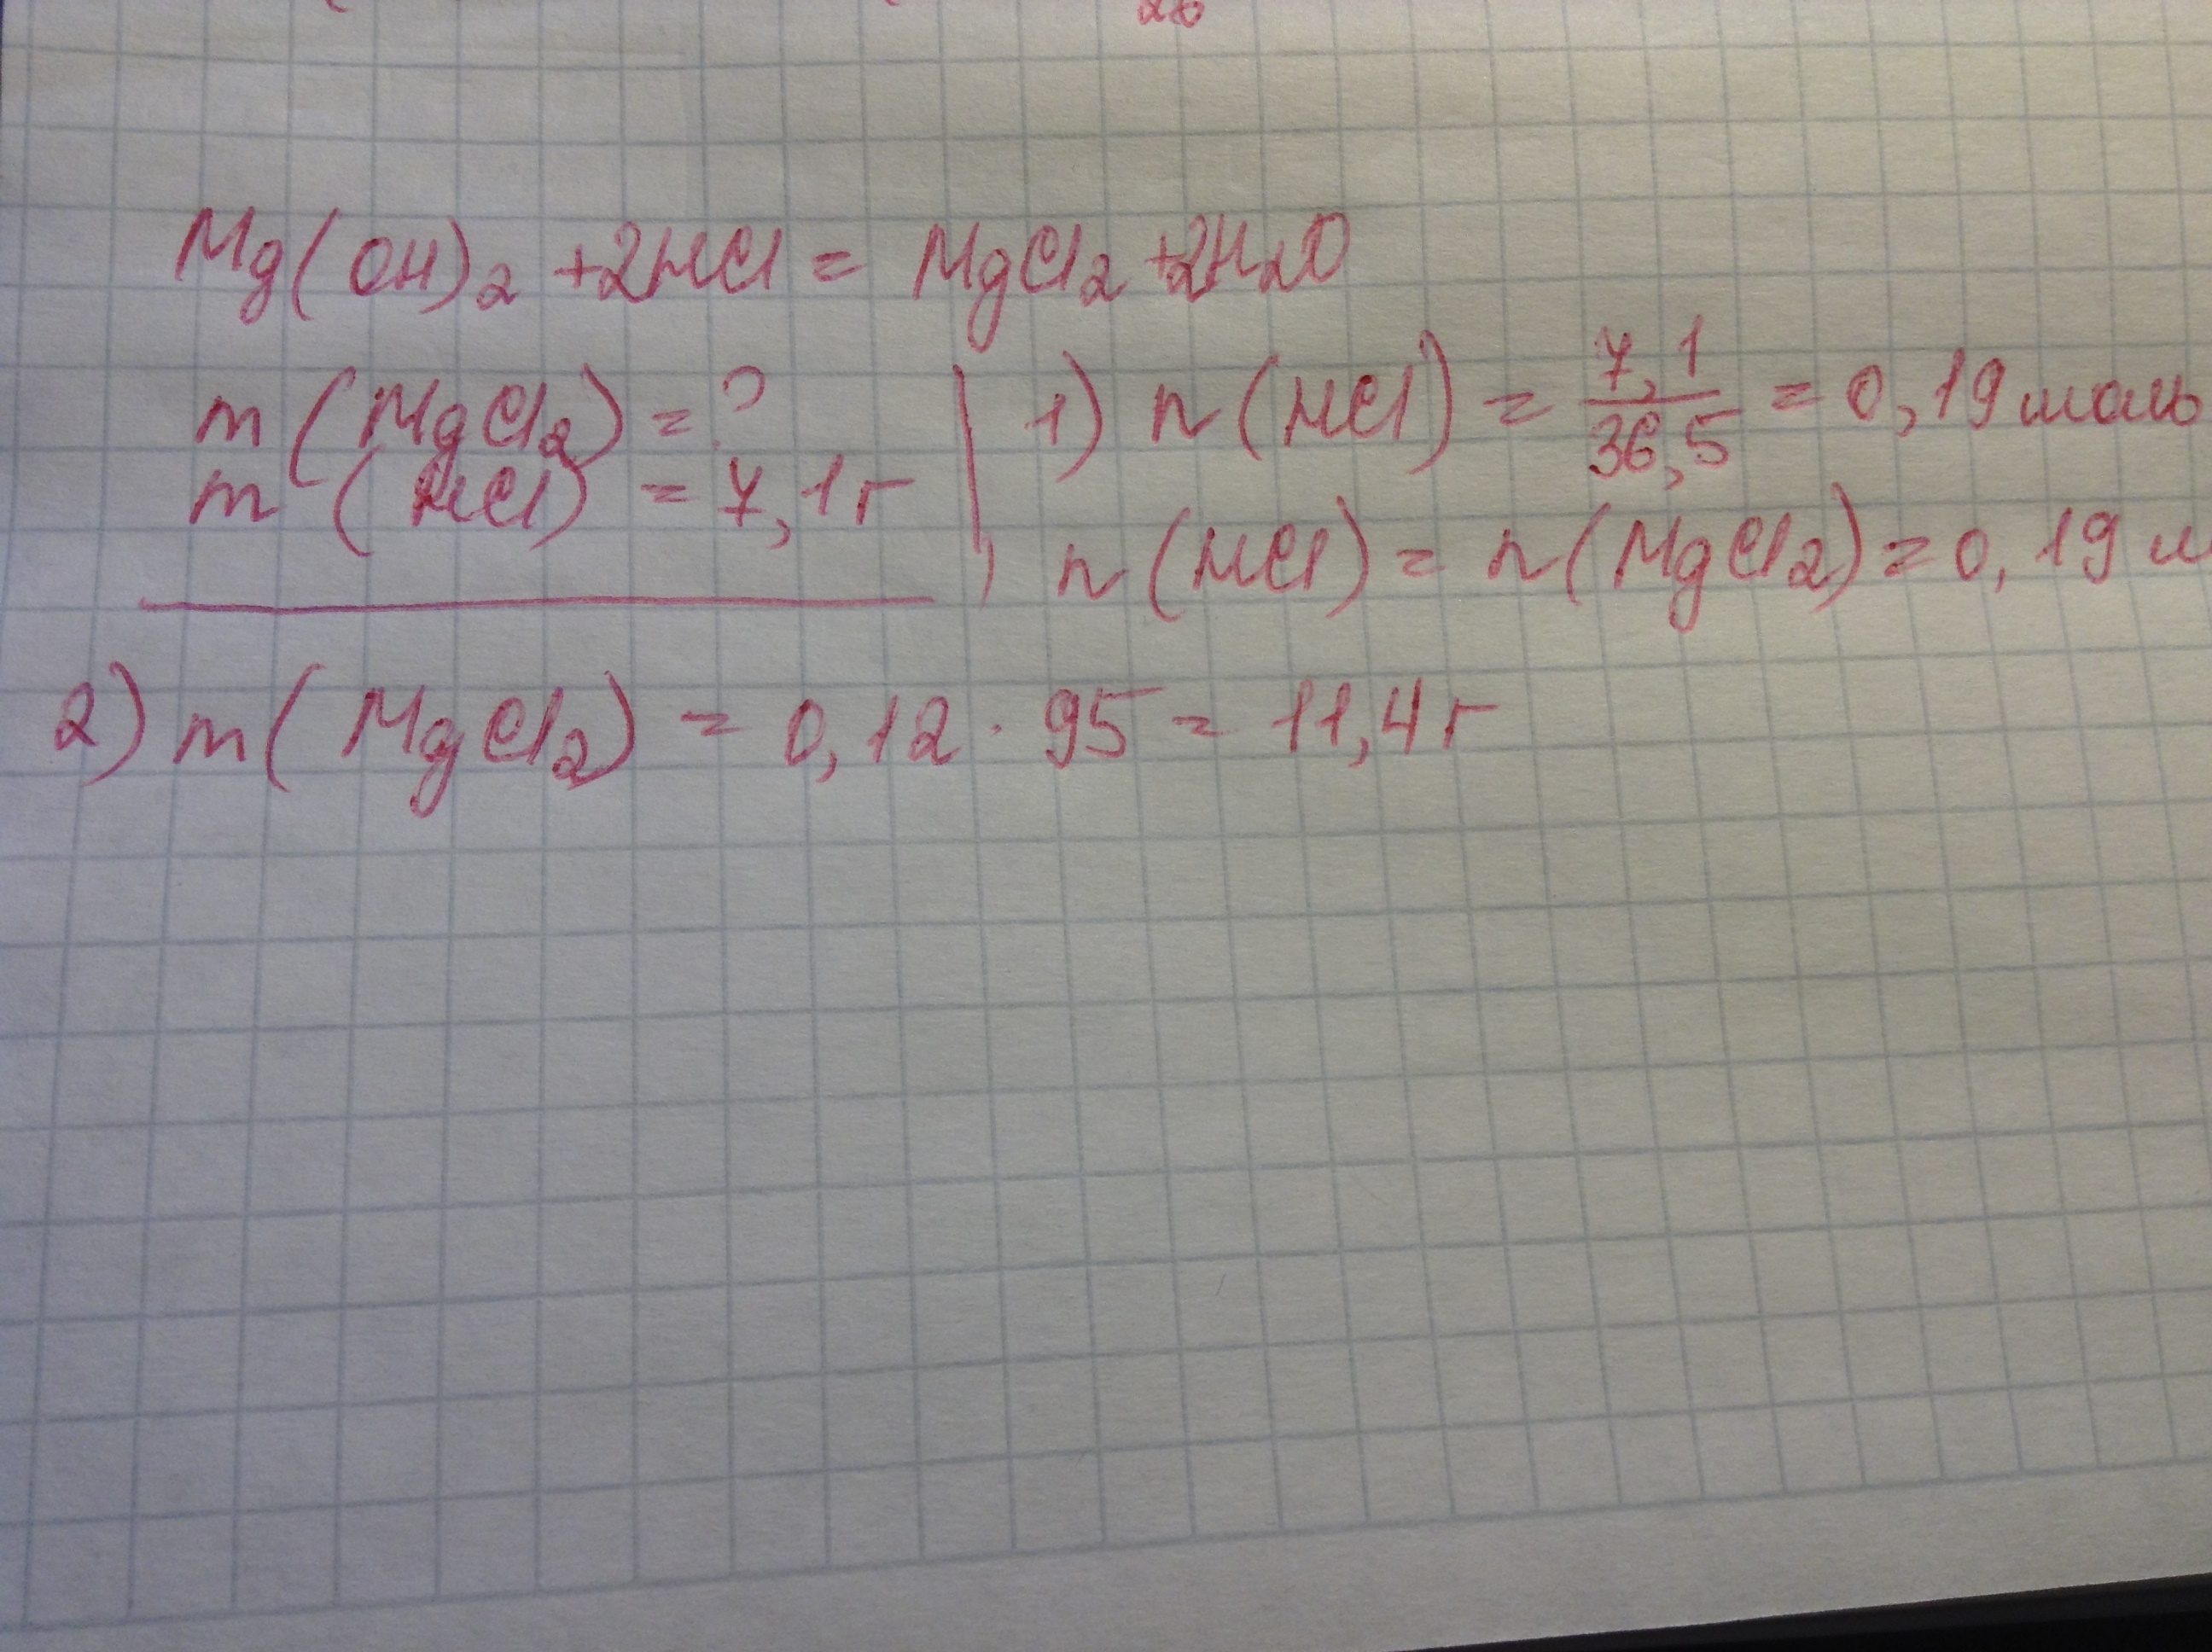 Mg(OH)2 +2HCl = MgCl2 +2H2O
m (MgCl2) = ?
m (HCl) = 7,1г
1) n (HCl) = 7,1/36,5 = 0,19 моль
n (HCl) = n (MgCl2) = 0,19 м
2) m (MgCl2) = 0,12 · 95 = 11,4г